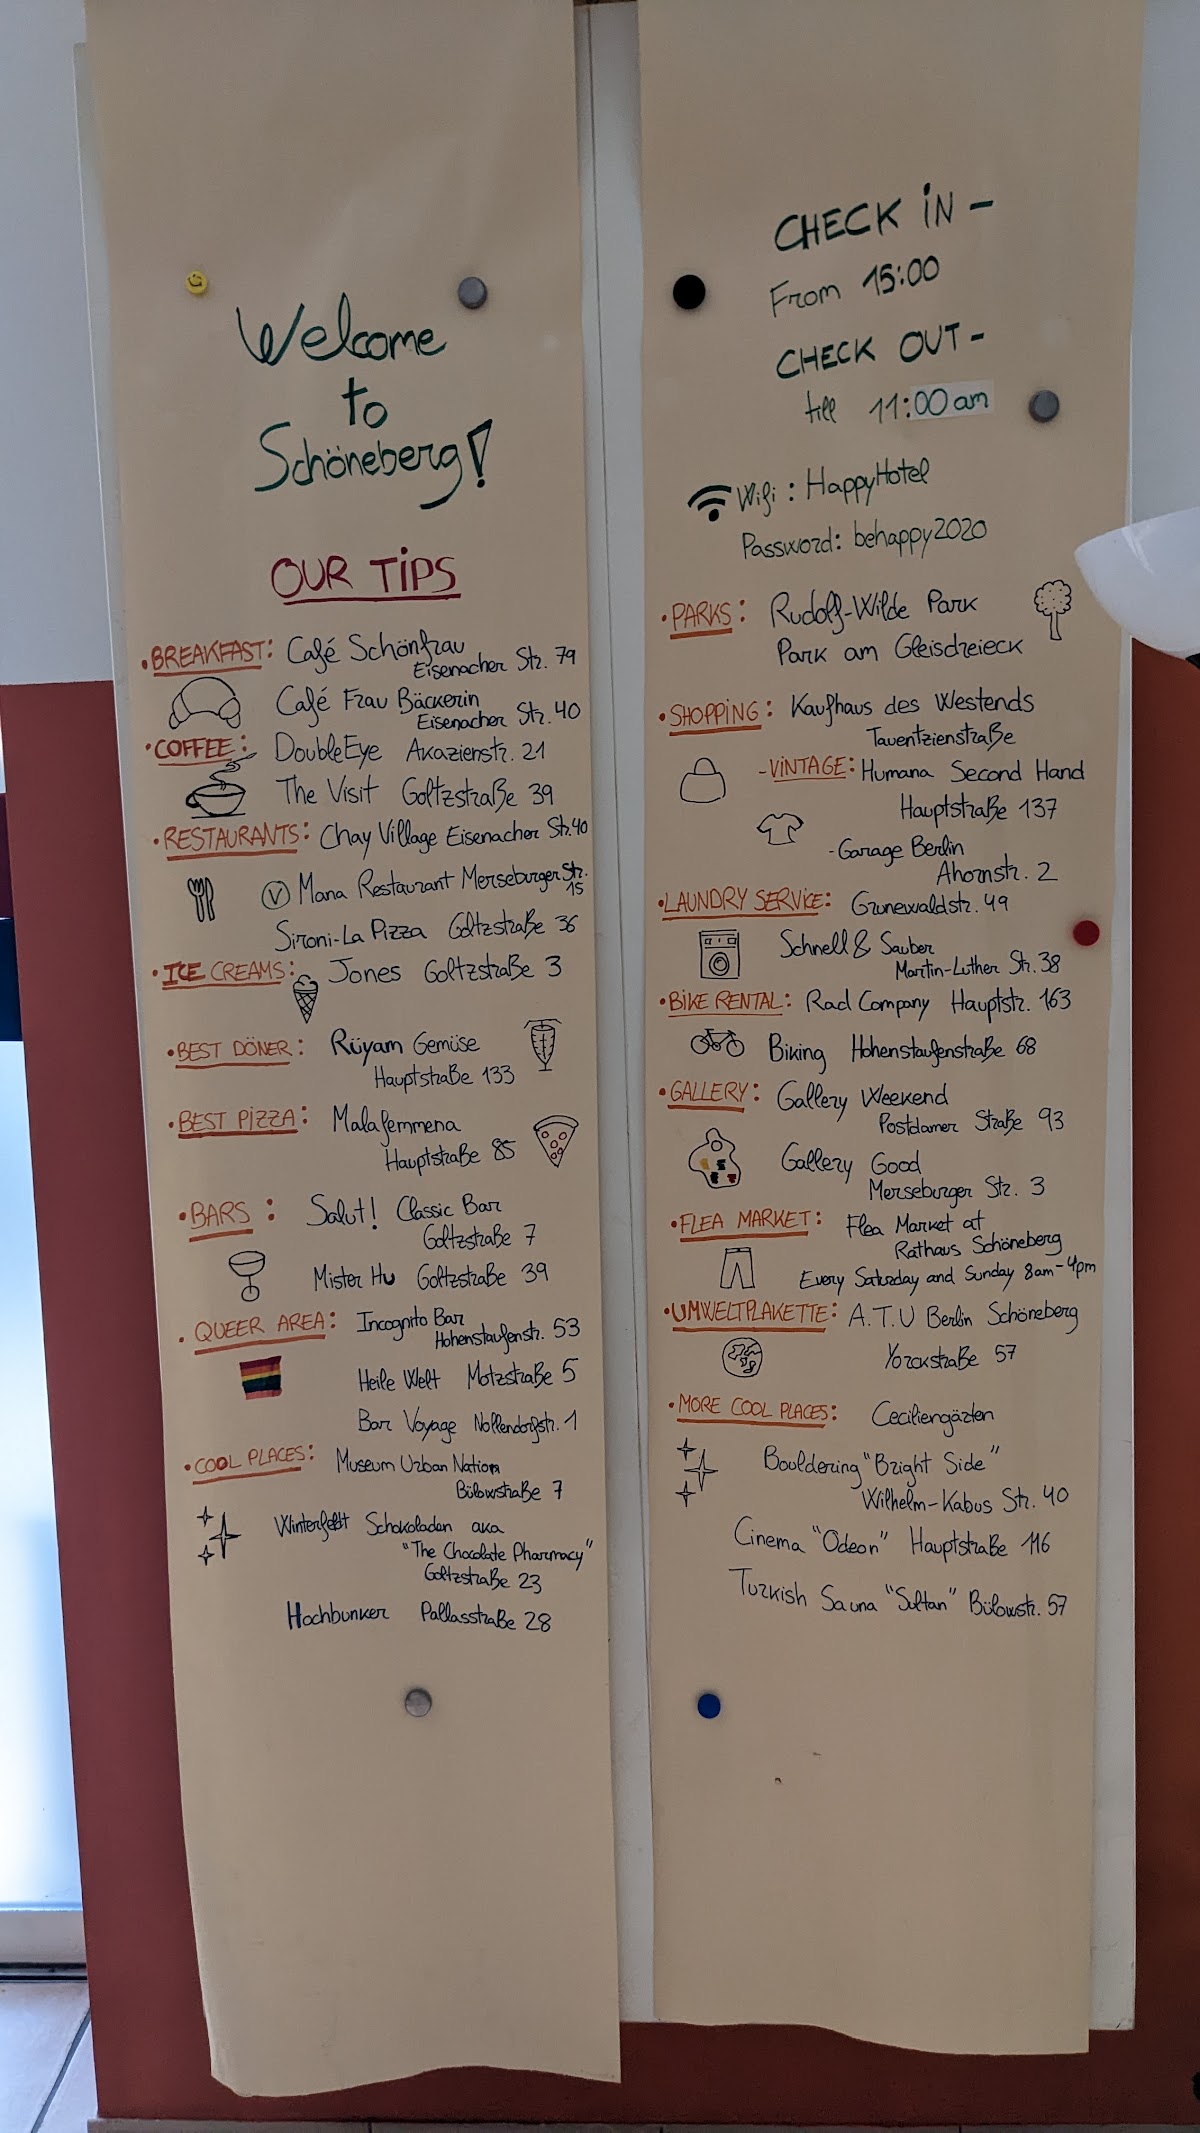 Welcome
to
Schöneberg!
OUR TIPS
•BREAKFAST: Café Schönfrau
Eisenacher Str. 79
Café Frau Bäckerin
Eisenacher Str. 40
•COFFEE: DoubleEye Akazienstr. 21
The Visit Goltzstraße 39
•RESTAURANTS: Chay Village Eisenacher Str. 40
Ⓥ Mana Restaurant Merseburger Str.
15
Sironi-La Pizza Goltzstraße 36
•ICE CREAMS: Jones Goltzstraße 3
•BEST DÖNER: Rüyam Gemüse
Hauptstraße 133
•BEST PIZZA: Malafemmena
Hauptstraße 85
•BARS: Salut! Classic Bar
Goltzstraße 7
Mister Hu Goltzstraße 39
•QUEER AREA: Incognito Bar
Hohenstaufenstr. 53
Heile Welt Motzstraße 5
Bar Voyage Nollendorfstr. 1
•COOL PLACES: Museum Urban Nation
Bülowstraße 7
Winterfeldt Schokoladen aka
"The Chocolate Pharmacy"
Goltzstraße 23
Hochbunker Pallasstraße 28
CHECK IN -
From 15:00
CHECK OUT -
till 11:00 am
Wifi: HappyHotel
Password: behappy2020
•PARKS: Rudolf-Wilde Park
Park am Gleisdreieck
•SHOPPING: Kaufhaus des Westends
Tauentzienstraße
-VINTAGE: Humana Second Hand
Hauptstraße 137
-Garage Berlin
Ahornstr. 2
•LAUNDRY SERVICE: Grunewaldstr. 49
Schnell & Sauber
Martin-Luther Str. 38
•BIKE RENTAL: Rad Company Hauptstr. 163
Biking Hohenstaufenstraße 68
•GALLERY: Gallery Weekend
Postdamer Straße 93
Gallery Good
Merseburger Str. 3
•FLEA MARKET: Flea Market at
Rathaus Schöneberg
Every Saturday and Sunday 8am-4pm
•UMWELTPLAKETTE: A.T.U Berlin Schöneberg
Yorckstraße 57
•MORE COOL PLACES: Ceciliengärten
Bouldering "Bright Side"
Wilhelm-Kabus Str. 40
Cinema "Odeon" Hauptstraße 116
Turkish Sauna "Sultan" Bülowstr. 57